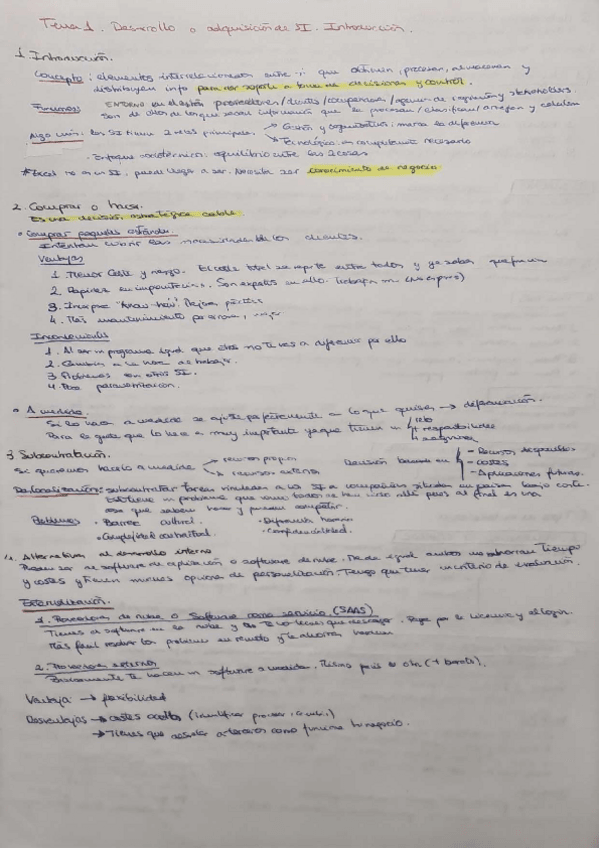 Tema 1. Desarrollo o adquisición de SI. Introducción.
1. Introducción.
Concepto: elementos interrelacionados entre sí que obtienen, procesan, almacenan y
distribuyen info para dar soporte a toma de decisiones y control.
Funciones: ENTORNO en el están proveedores/clientes/competidores/agencias de regulación y stakeholders.
Son de donde se saca información que la procesan/clasifican/arreglan y calculan
Algo más: los SI tienen 2 principales
Gestión y organizativa: marca la diferencia
Tecnológico: un componente necesario
· Enfoque sociotécnico: equilibrio entre las 2 cosas
* Excel no es un SI, puede llegar a ser. Necesita ser conocimiento de negocio
2. Comprar o hacer.
Es una decisión estratégica
• Comprar paquetes estándar.
Intentan cubrir las necesidades de los clientes.
Ventajas
1. Menor coste y riesgo. El coste total se reparte entre todos y ya sabes que
2. Rapidez en implantación. Son expertos en ello. Trabajan
3. Incorpora "know-how". Mejores prácticas
4. Más mantenimiento
Inconvenientes
1. Al ser un programa igual que otros no te vas a diferenciar por ello
2. Cambian a la hora de trabajar.
3. Problemas con otros SI.
4. Poca parametrización.
• A medida
Si lo haces a medida se ajusta perfectamente a lo que quieres → diferenciación.
Para la gente que lo hace es muy importante ya que tienen un
reto
responsabilidades
3 Subcontratación.
Si queremos hacerlo a medida
recursos propios
recursos externos
Decisión basada en
- Recursos disponibles
- costes
- Aplicaciones futuras.
Deslocalización: subcontratar tareas vinculadas a los SI a compañías situadas en países bajo coste.
Esto tiene un problema que como todos se han ido allí pues al final es una
cosa que saben hacer y pueden competir.
Problemas
· Barrera cultural
· Diferencia horaria
· Complejidad contractual
· Confidencialidad.
4. Alternativas al desarrollo interno
Puede ser de software de aplicación o software de nube. Me da igual ambos me ahorran tiempo
y costes y tienen menos opciones de personalización. Tengo que tener un criterio de evaluación.
Externalización.
1. Proveedores de nube o Software como servicio (SAAS)
Tienes el software en la nube y no te lo tienes que descargar. Pagas por la licencia y el login.
Más fácil resolver los problemas en remoto y te ahorras
2. Proveedores externos
Básicamente te hacen un software a medida. Mismo país u otro (+ barato).
Ventaja → flexibilidad
Desventajas → costes ocultos (
→ Tienes que desvelar a terceros como funciona tu negocio.